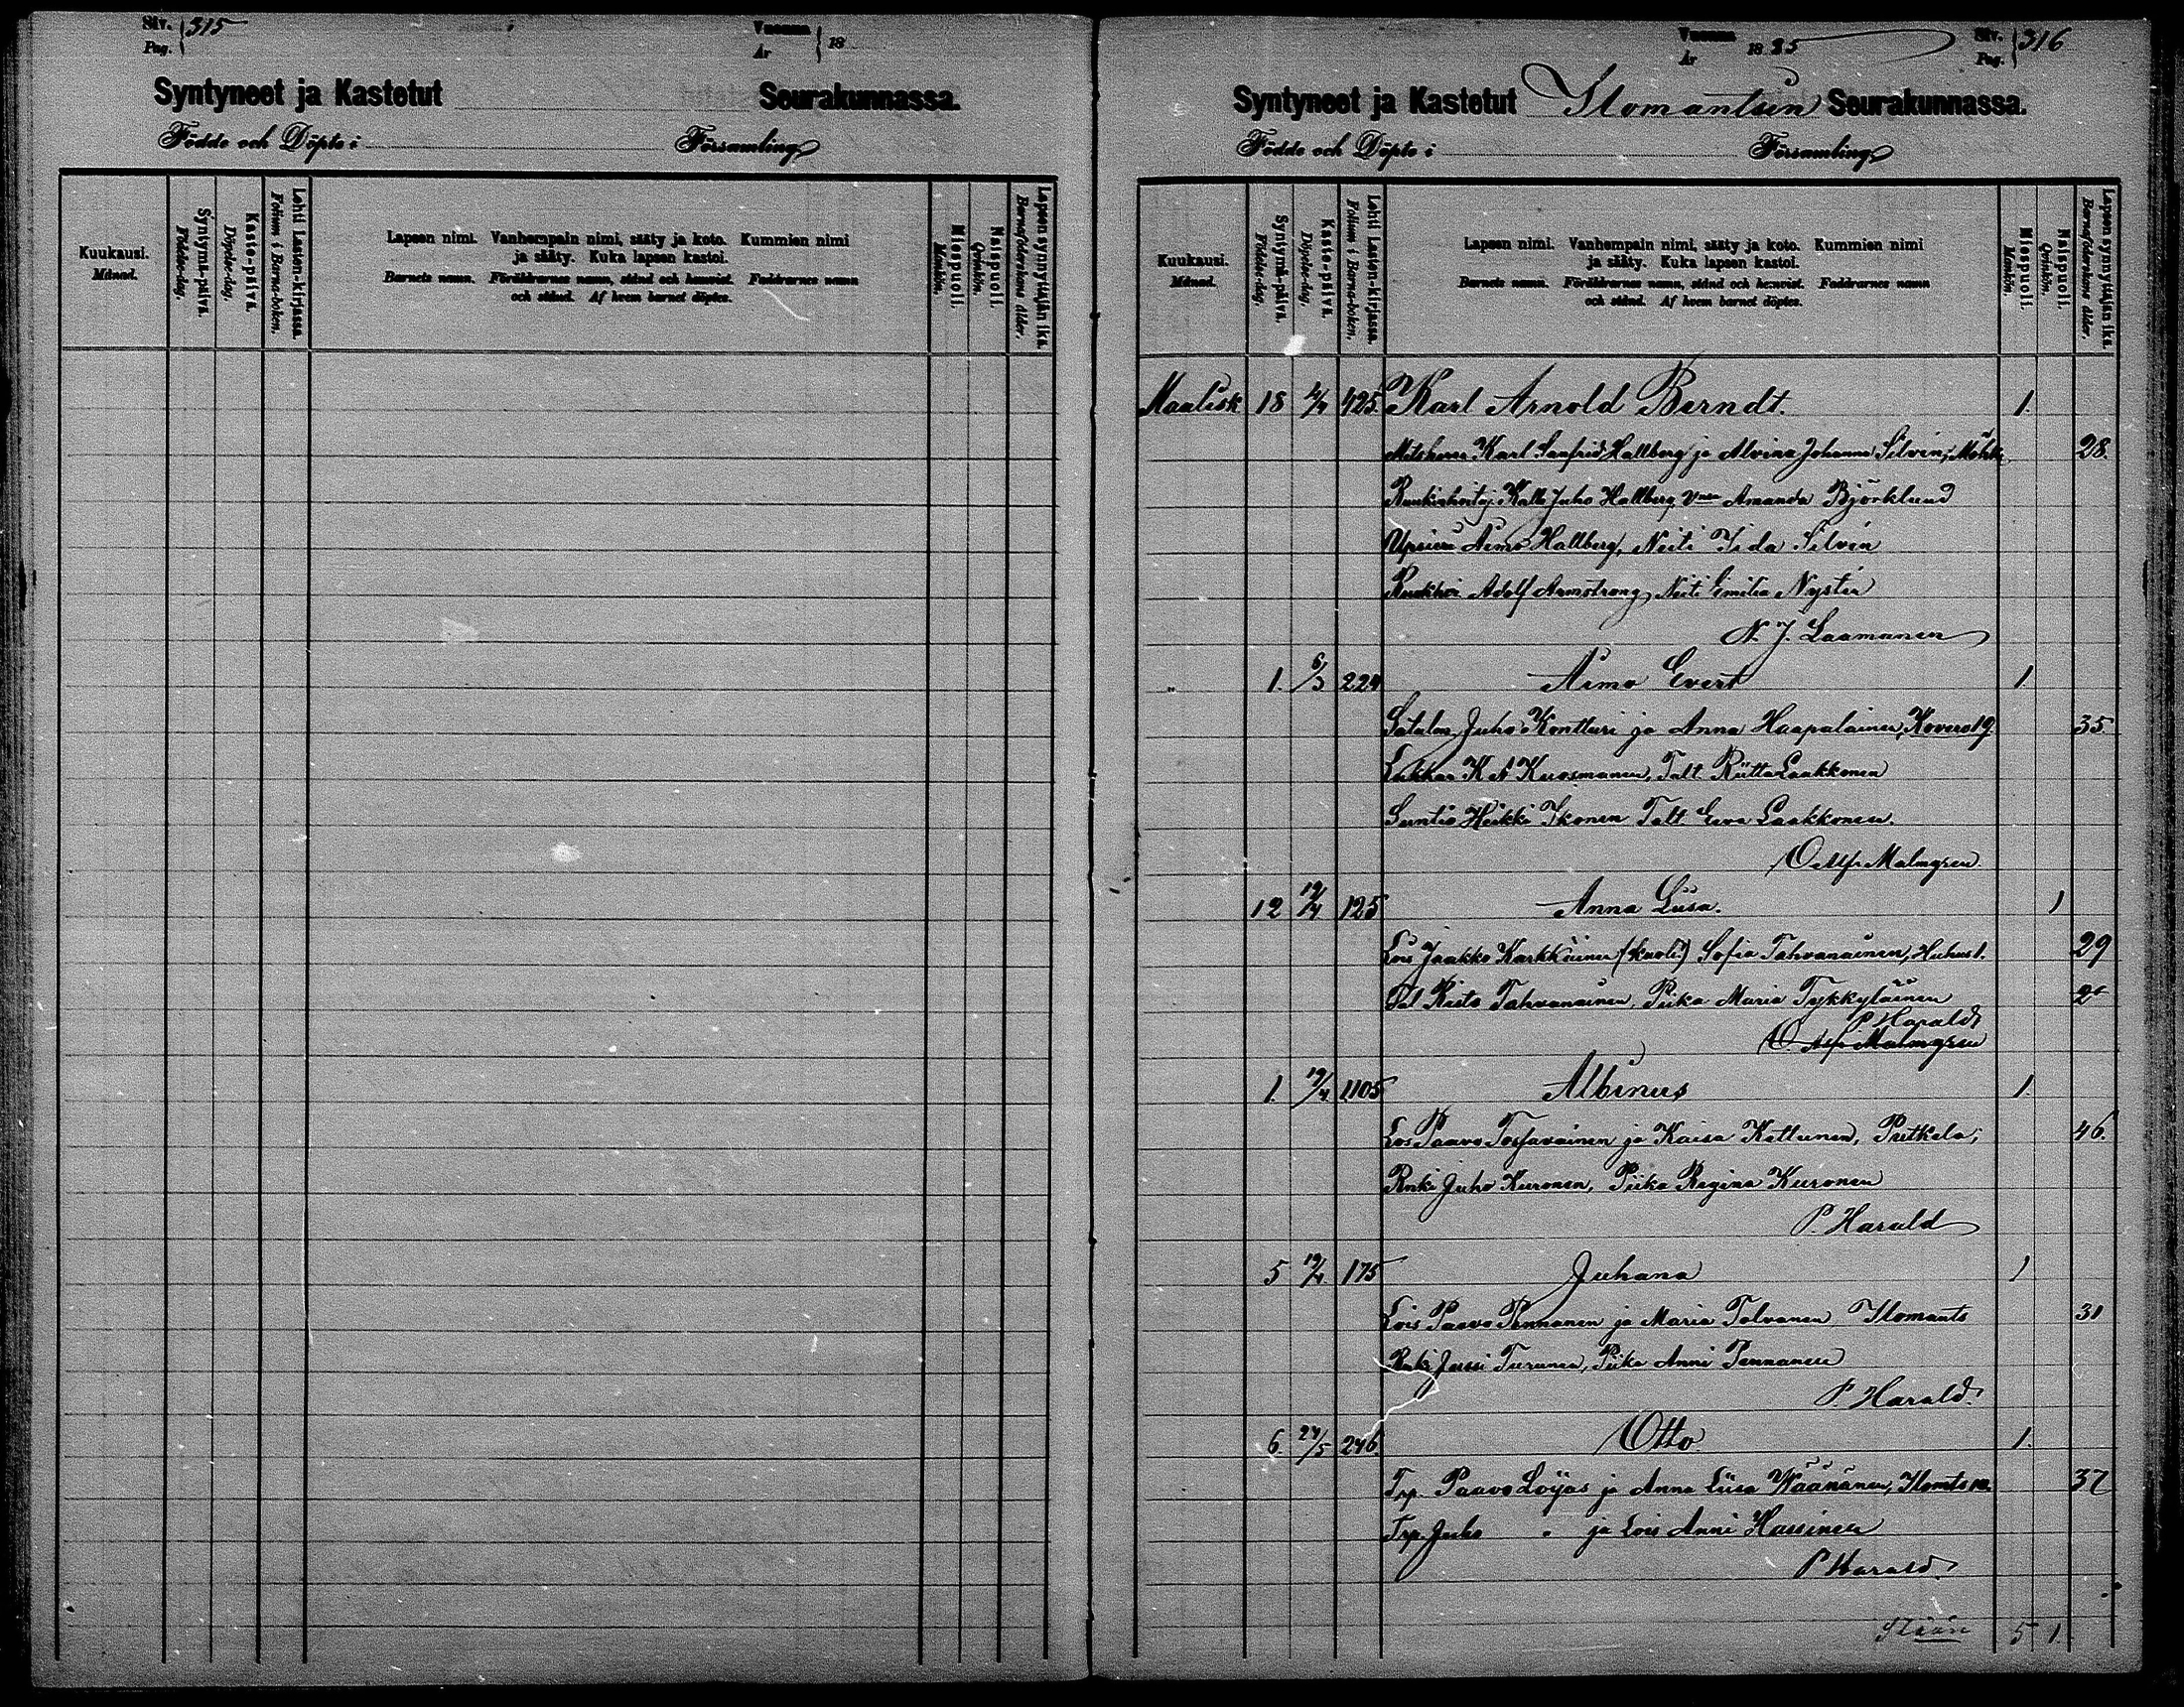 Siv. Pag. 315
Vuonna År 18
Syntyneet ja Kastetut Seurakunnassa.
Födde och Döpte i Församling
Kuukausi. Månad.
Syntymä-päivä. Födelse-dag.
Kaste-päivä. Döpelse-dag.
Lehti Lasten-kirjassa. Folium i Barna-boken.
Lapsen nimi. Vanhempain nimi, sääty ja koto. Kummien nimi
ja sääty. Kuka lapsen kastoi.
Barnets namn. Föräldrarnes namn, stånd och hemvist. Faddrarnes namn
och stånd. Af hvem barnet döptes.
Miespuoli. Mankön.
Naispuoli. Qvinkön.
Lapsen synnyttäjän ikä. Barnaföderskans ålder.
Vuonna År 1885
Siv. Pag. 316
Syntyneet ja Kastetut Ilomantsin Seurakunnassa.
Födde och Döpte i Församling
Kuukausi. Månad.
Syntymä-päivä. Födelse-dag.
Kaste-päivä. Döpelse-dag.
Lehti Lasten-kirjassa. Folium i Barna-boken.
Lapsen nimi. Vanhempain nimi, sääty ja koto. Kummien nimi
ja sääty. Kuka lapsen kastoi.
Barnets namn. Föräldrarnes namn, stånd och hemvist. Faddrarnes namn
och stånd. Af hvem barnet döptes.
Miespuoli. Mankön.
Naispuoli. Qvinkön.
Lapsen synnyttäjän ikä. Barnaföderskans ålder.
Maalisk 18 425 Karl Arnold Berndt. 1.
Karl Sanfrid Hallberg ja Alvina Johanna Silvin; Möhk 28.
Kalle Juho Hallberg, Amanda Björklund
Aimo Hallberg, Neiti Iida Silvin
Adolf Armstrong, Neiti Emilia Nystén
N. J. Laamanen
" 1. 6/3 224 Aimo Evert 1.
Juho Kontturi ja Anna Haapalainen, Kovero 19. 35
Lukkar K A Kuosmanen, Talt. Riitta Laakkonen
Suntio Heikki Ikonen Talt. Eeva Laakkonen.
O Alf. Malmgren
12 19/4 125 Anna Liisa. 1
Lois Jaakko Karkkainen (kuoli) Sofia Tahvanainen, Huhus 1. 29
Tal Risto Tahvanainen, Piika Maria Tykkyläinen
P Harald
O. Alf. Malmgren
1. 19/4 1105 Albinus 1.
Lois Paavo Tossavainen ja Kaisa Kettunen, Putkela; 46.
Renki Juho Kuronen, Piika Regina Kuronen
P. Harald
5 19/4 175 Juhana 1
Lois Paavo Pennanen ja Maria Tolvanen Ilomants 31
Renki Jussi Turunen, Piika Anni Pennanen
P. Harald.
6. 24/5 246. Otto 1.
Trp. Paavo Löijas ja Anna Liisa Wäänänen, Ilomts 37
Trp. Juho " ja Lois Anni Hassinen
P Harald.
5 1.